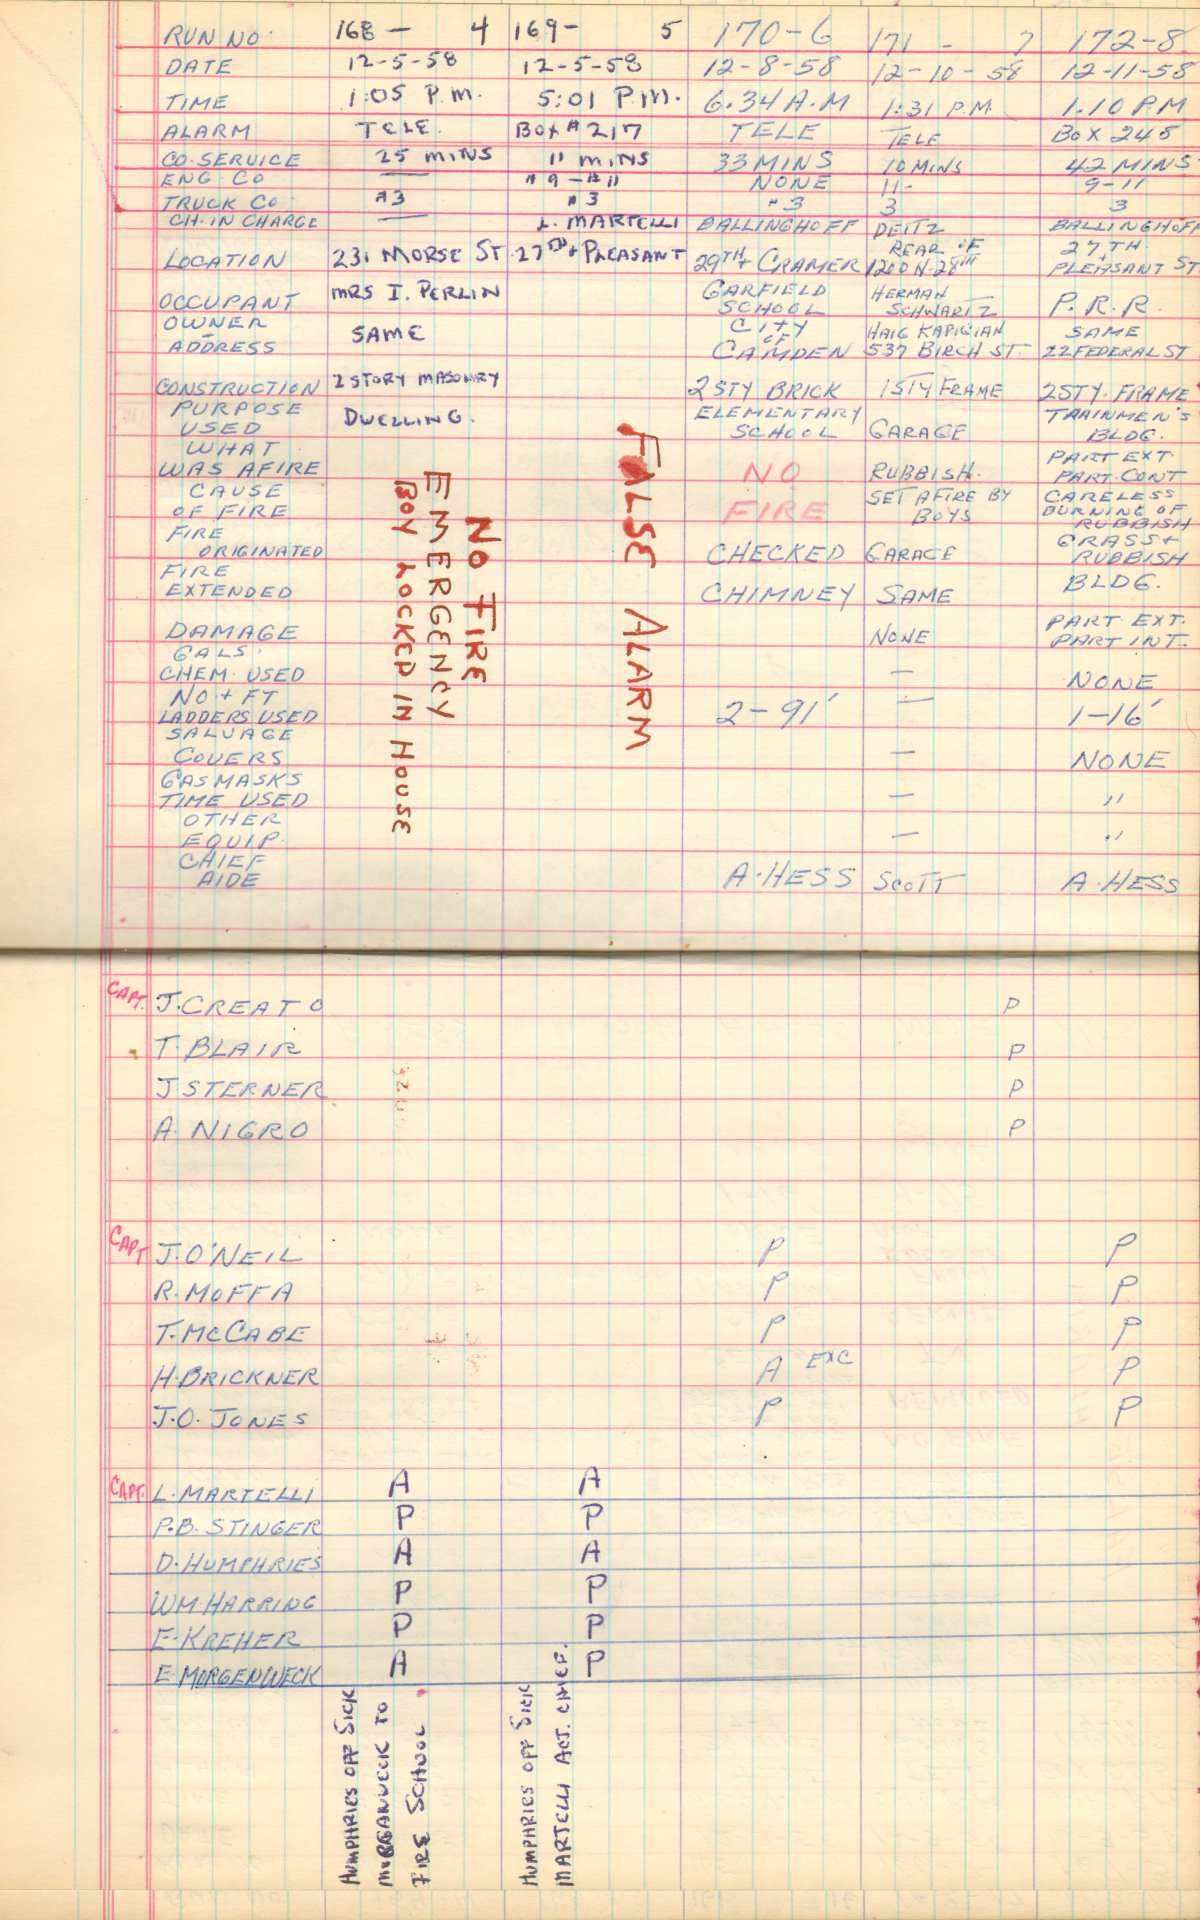 RUN NO. 168 - 4 169- 5 170-6 171 - 7 172-8
DATE 12-5-58 12-5-58 12-8-58 12-10-58 12-11-58
TIME 1:05 P.M. 5:01 P.M. 6.34 A.M 1:31 P.M. 1.10 P.M
ALARM TELE. BOX # 217 TELE TELE BOX 245
CO. SERVICE 25 MINS 11 MINS 33 MINS 10 MINS 42 MINS
ENG. CO — #9 - #11 NONE 11- 9-11
TRUCK CO #3 #3 "3 3 3
CH. IN CHARGE — L. MARTELLI BALLINGHOFF DEITZ BALLINGHOFF
LOCATION 231 MORSE ST. 27TH + PLEASANT 29TH + CRAMER REAR OF 1200 N. 28TH 27TH + PLEASANT ST
OCCUPANT MRS I. PERLIN GARFIELD SCHOOL HERMAN SCHWARTZ P.R.R.
OWNER - ADDRESS SAME CITY OF CAMDEN HAIG KAPIGIAN 537 BIRCH ST. SAME 22 FEDERAL ST
CONSTRUCTION 2 STORY MASONRY 2 STY BRICK 1 STY FRAME 2 STY. FRAME
PURPOSE USED DWELLING. ELEMENTARY SCHOOL GARAGE TRAINMEN'S BLDG.
WHAT WAS AFIRE NO RUBBISH. PART EXT. PART. CONT
CAUSE OF FIRE FIRE SET AFIRE BY BOYS CARELESS BURNING OF RUBBISH
FIRE ORIGINATED CHECKED GARAGE GRASS + RUBBISH
FIRE EXTENDED CHIMNEY SAME BLDG.
DAMAGE NONE PART EXT. PART INT.
GALS. CHEM. USED — NONE
NO. + FT LADDERS USED 2-91' — 1-16'
SALVAGE COVERS — NONE
GAS MASKS TIME USED — "
OTHER EQUIP. — "
CHIEF AIDE A. HESS SCOTT A. HESS
NO FIRE
EMERGENCY
BOY LOCKED IN HOUSE
FALSE ALARM
CAPT. J. CREATO P
T. BLAIR P
J STERNER P
A. NIGRO P
CAPT J. O'NEIL P P
R. MOFFA P P
T. MCCABE P P
H. BRICKNER A EXC P
J.O. JONES P P
CAPT. L. MARTELLI A A
P.B. STINGER P P
D. HUMPHRIES A A
WM HARRING P P
E. KREHER P P
E. MORGENWECK A P
HUMPHRIES OFF SICK
MORGANWECK TO
FIRE SCHOOL
HUMPHRIES OFF SICK
MARTELLI ACT. CHIEF.